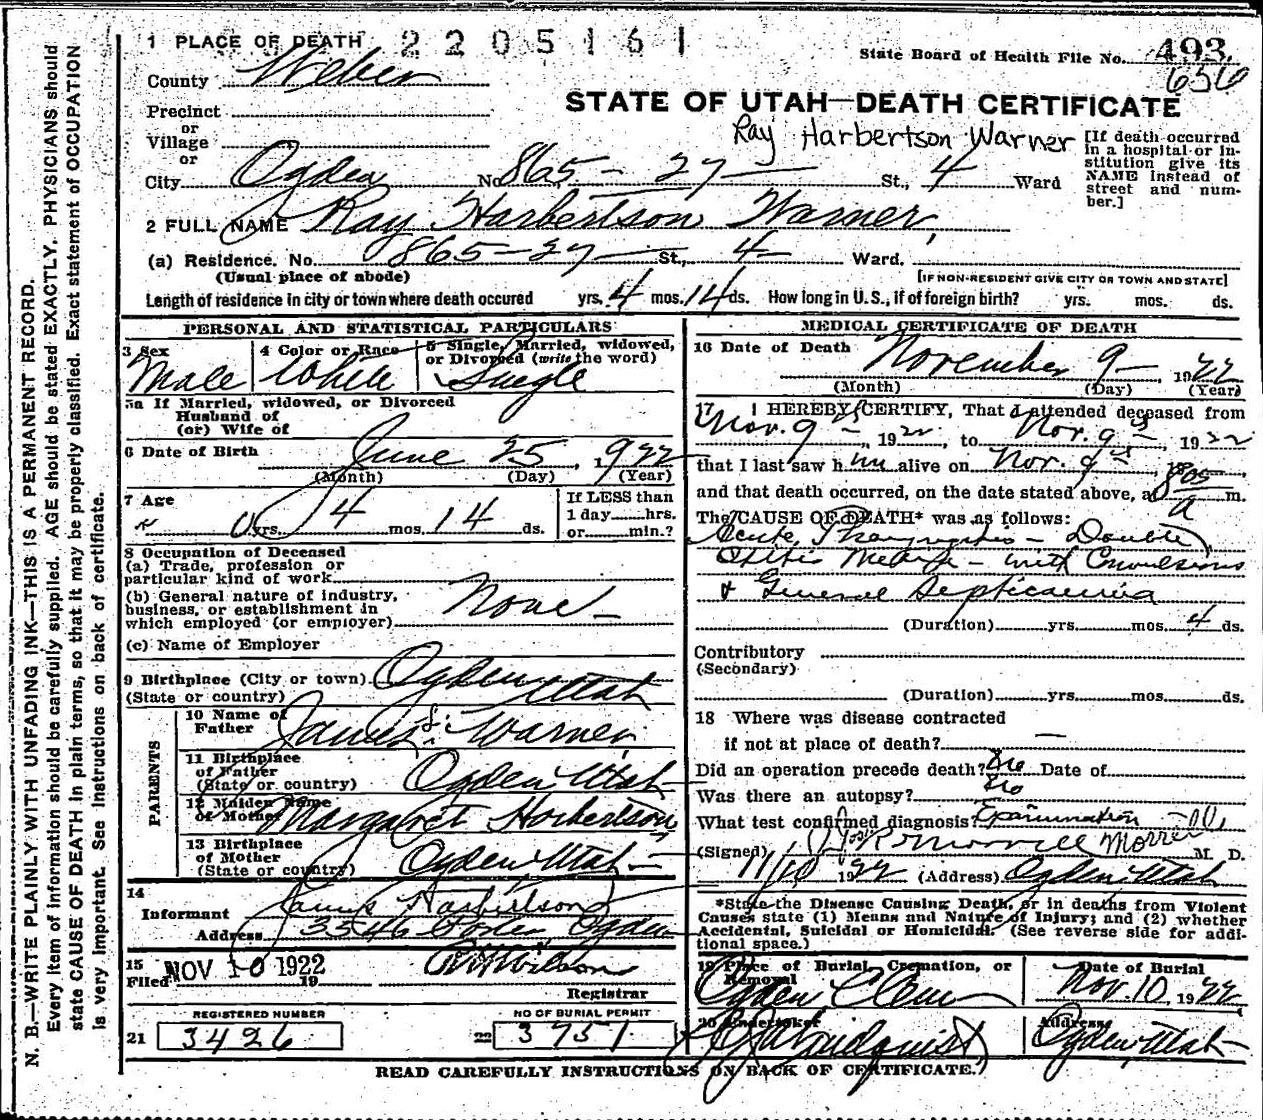 1 PLACE OF DEATH 2205161
State Board of Health File No. 493.
656
County Weber
STATE OF UTAH—DEATH CERTIFICATE
Precinct
or
Village
or
Ray Harbertson Warner
[If death occurred
in a hospital or in-
stitution give its
NAME instead of
street and num-
ber.]
City Ogden No. 865 - 27 St., 4 Ward
2 FULL NAME Ray Harbertson Warner,
(a) Residence. No. 865-27 St., 4 Ward.
(Usual place of abode) [IF NON-RESIDENT GIVE CITY OR TOWN AND STATE]
Length of residence in city or town where death occured yrs. 4 mos. 14 ds. How long in U. S., if of foreign birth? yrs. mos. ds.
PERSONAL AND STATISTICAL PARTICULARS
3 Sex 4 Color or Race 5 Single, Married, widowed,
or Divorced (write the word)
Male White Single
5a If Married, widowed, or Divorced
Husband of
(or) Wife of
6 Date of Birth June 25, 1922
(Month) (Day) (Year)
7 Age If LESS than
0 yrs. 4 mos. 14 ds. 1 day hrs.
or min.?
8 Occupation of Deceased
(a) Trade, profession or
particular kind of work
(b) General nature of industry,
business, or establishment in
which employed (or employer) None
(c) Name of Employer
9 Birthplace (City or town) Ogden Utah
(State or country)
PARENTS
10 Name of
Father James S. Warner
11 Birthplace
of Father
(State or country) Ogden Utah
12 Maiden Name
of Mother Margaret Harbertson
13 Birthplace
of Mother
(State or country) Ogden Utah
14
Informant James Harbertson
Address 3546 Ogden
15
Filed NOV 10 1922 19
Registrar
REGISTERED NUMBER NO OF BURIAL PERMIT
21 3426 22 3751
MEDICAL CERTIFICATE OF DEATH
16 Date of Death November 9 - , 1922
(Month) (Day) (Year)
17 I HEREBY CERTIFY, That I attended deceased from
Nov. 9 , 1922, to Nov. 9 , 1922
that I last saw him alive on Nov. 9
and that death occurred, on the date stated above, a 805 a m.
The CAUSE OF DEATH* was as follows:
Acute Pharyngitis - Double
Otitis Media - with Convulsions
& General Septicaemia
(Duration) yrs. mos. 4 ds.
Contributory
(Secondary)
(Duration) yrs. mos. ds.
18 Where was disease contracted
if not at place of death? —
Did an operation precede death? No Date of
Was there an autopsy? No
What test confirmed diagnosis? Examination
(Signed) R Morrell Morrell M. D.
11/10 1922 (Address) Ogden Utah
*State the Disease Causing Death, or in deaths from Violent
Causes state (1) Means and Nature of Injury; and (2) whether
Accidental, Suicidal or Homicidal. (See reverse side for addi-
tional space.)
19 Place of Burial, Cremation, or
Removal Date of Burial
Ogden Nov. 10, 1922
20 Undertaker Address
Lindquist Ogden, Utah
READ CAREFULLY INSTRUCTIONS ON BACK OF CERTIFICATE.
N. B.—WRITE PLAINLY WITH UNFADING INK—THIS IS A PERMANENT RECORD.
Every item of information should be carefully supplied. AGE should be stated EXACTLY. PHYSICIANS should
state CAUSE OF DEATH in plain terms, so that it may be properly classified. Exact statement of OCCUPATION
is very important. See Instructions on back of certificate.